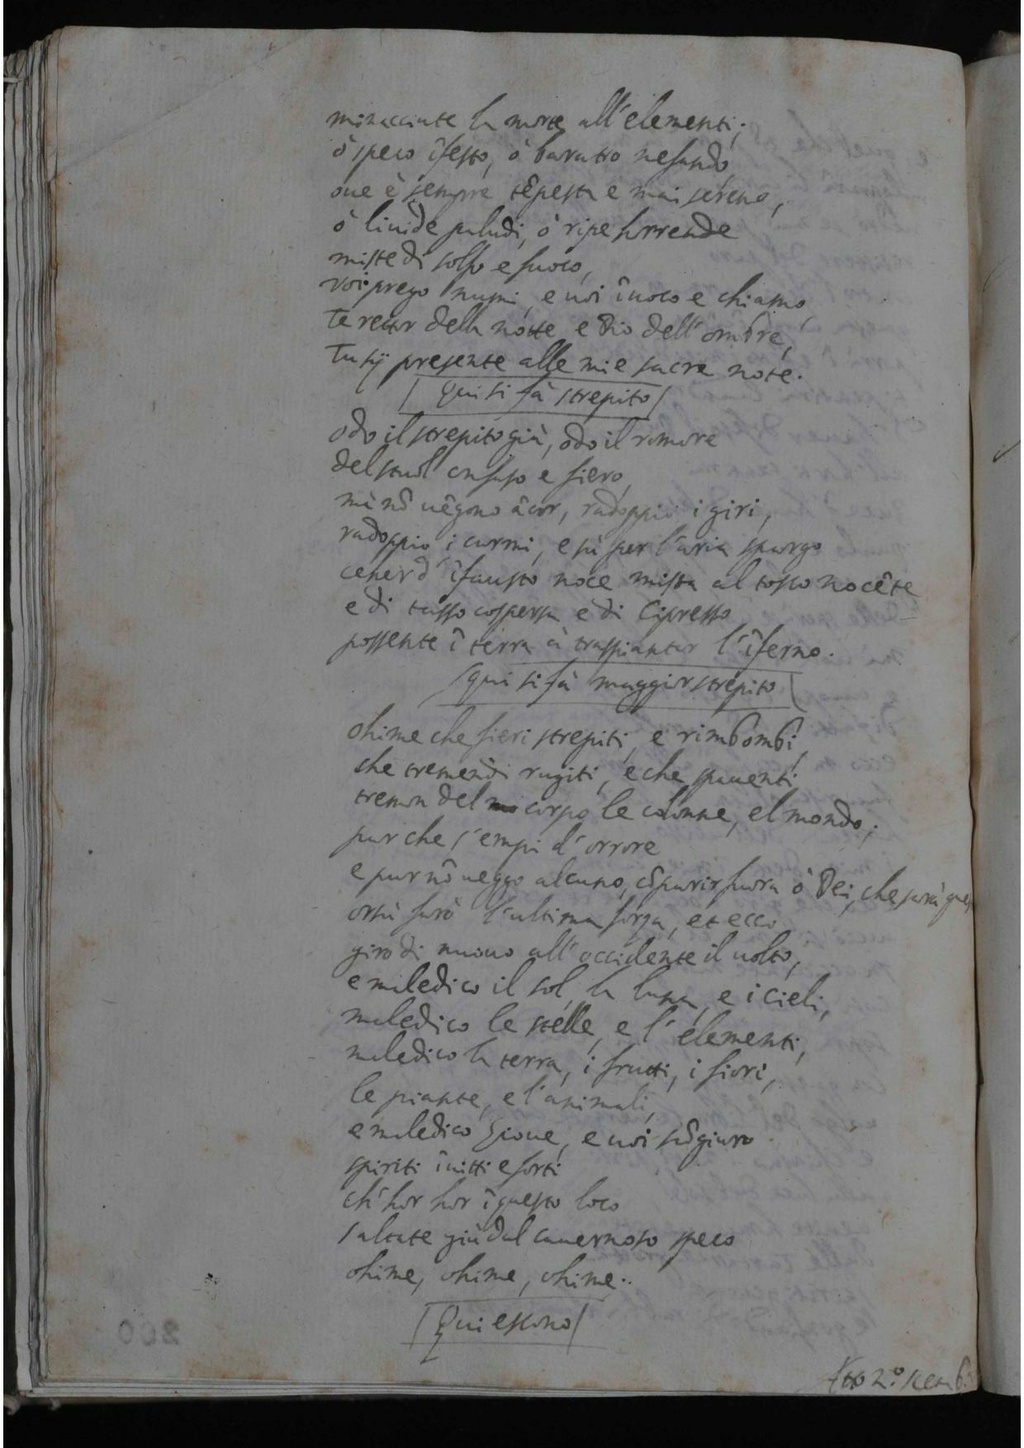 minacciate la morte all'elementi;
ò speco îfesto, ò baratro nefando
oue è sempre têpesta e mai sereno,
ò liuide paludi, ò ripe horrende
miste di solfo e fuoco,
voi prego numi, e uoi îuoco e chiamo,
Te rettor della notte e Dio dell'ombre,
Tu sij presente alle mie sacre note.
Qui si fà strepito
odo il strepito già, odo il romore
del stuol confuso e fiero,
mà nô uêgono âcor, radoppio i giri,
radoppio i carmi, e sù per l'aria spargo
cener d'îfausto noce mista al tosco nocête
e di tasso cospersa e di Cipresso
possente î terra à traspiantar l'îferno.
qui si fà maggior strepito
ohime che fieri strepiti, e rimbombi,
che tremendi rugiti, e che spauenti
treman del corpo le colonne, el mondo;
par che s'empi d'orrore
e pur nô ueggo alcuno, côparir fuora ò Dei, che sarà
orsù farò l'ultima forza, et ecco
giro di nuouo all'occidente il uolto,
e maledico il sol, la luna, e i cieli,
maledico le stelle, e l'elementi,
maledico la terra, i frutti, i fiori,
le piante, e l'animali,
e maledico Gioue, e uoi scôgiuro
spiriti îuitti e forti
ch'hor hor î questo loco
saltate giù dal cauernoso speco
ohime, ohime, ohime..
Qui escono
Atto 2.º scena 6.
200